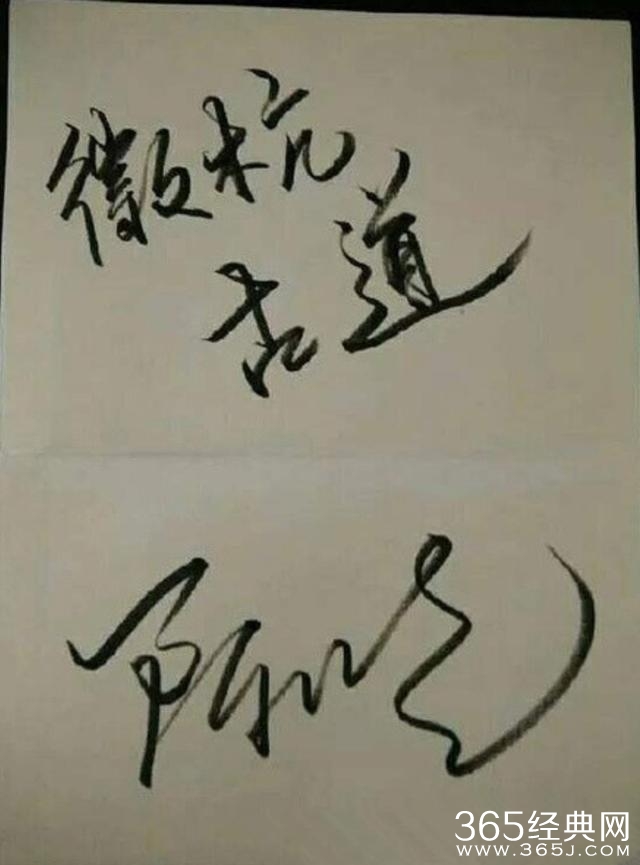 徽杭
古道
365经典网
www.365J.com